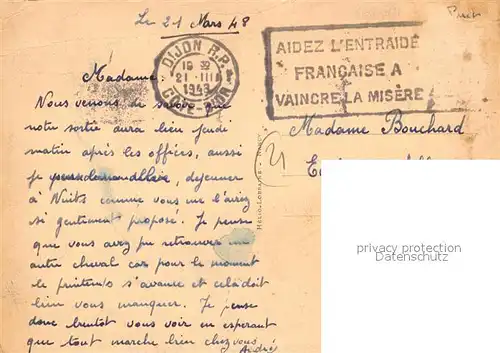 Le 21 Mars 48
DIJON R.P.
21 III
CÔTE-D'OR
AIDEZ L'ENTRAIDE
FRANÇAISE A
VAINCRE LA MISÈRE
Madame Bouchard
21
Madame,
Nous venons de savoir que
notre sortie aura lieu jeudi
matin après les offices, aussi
je déjeuner
à Nuits comme vous me l'aviez
si gentiment proposé. Je pense
que vous avez pu retrouver un
autre cheval car pour le moment
le printemps s'avance et cela doit
bien vous manquer. Je pense
donc bientôt vous voir en espérant
que tout marche bien chez vous
André
privacy protection
Datenschutz